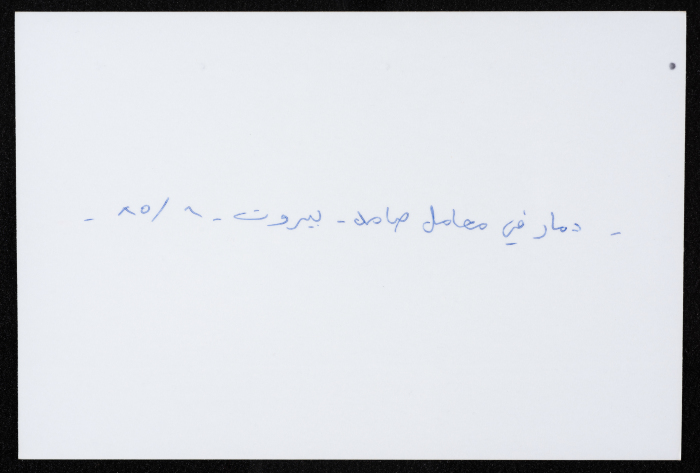 - دمار في معامل صامد - بيروت - ٨ / ٨٥ -